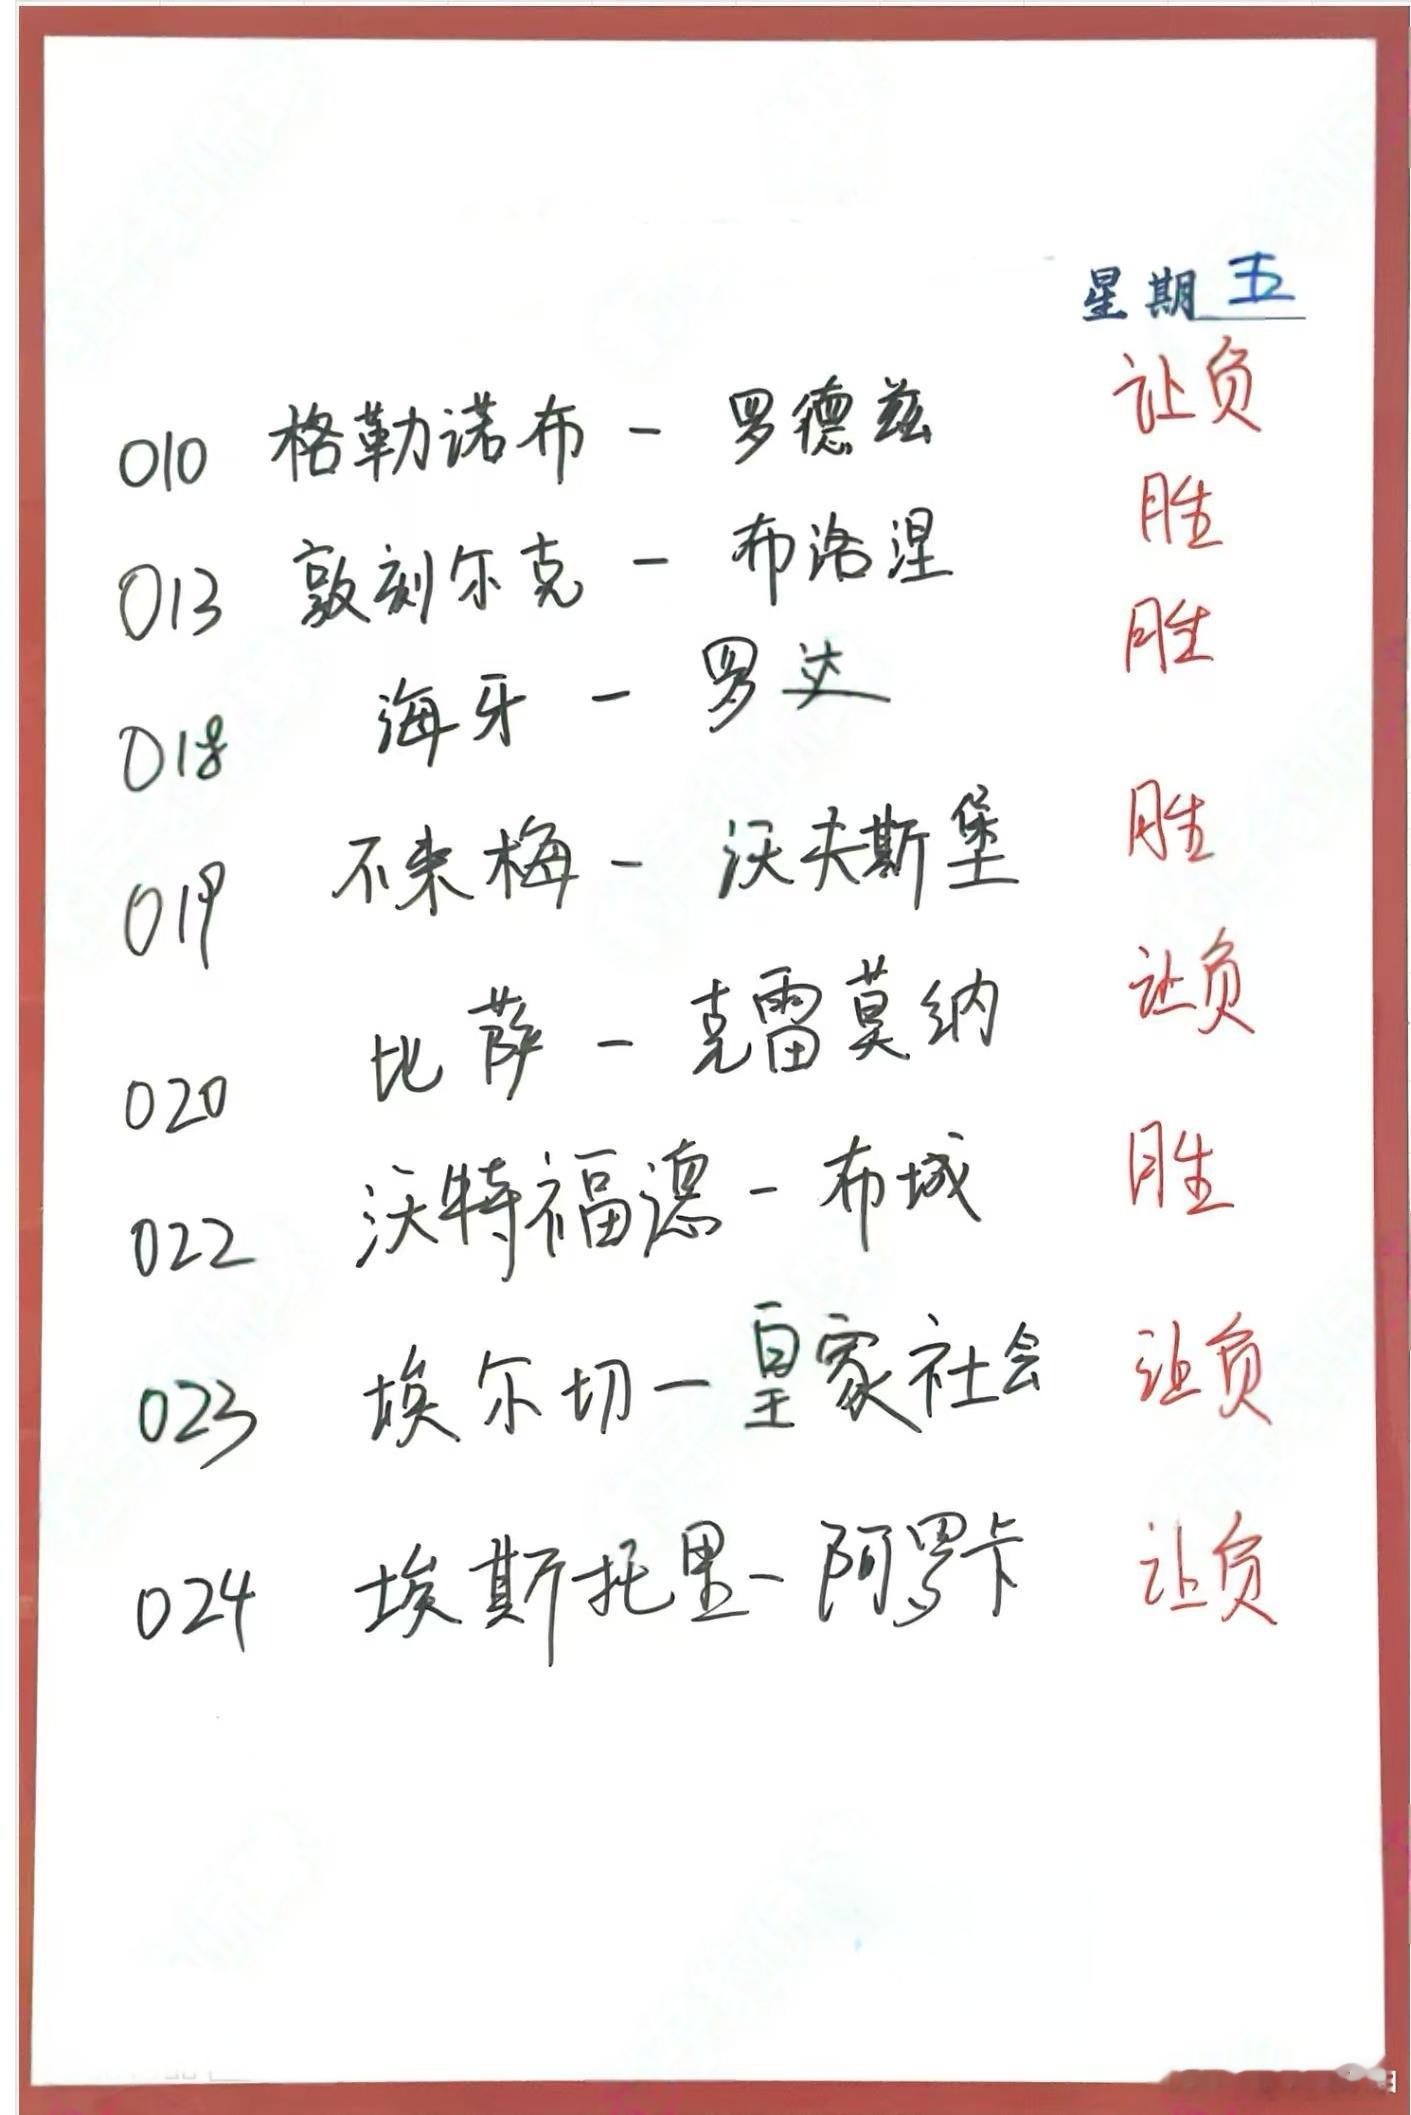 星期五
010 格勒诺布 - 罗德兹 让负
013 敦刻尔克 - 布洛涅 胜
018 海牙 - 罗达 胜
019 不来梅 - 沃夫斯堡 胜
020 比萨 - 克雷莫纳 让负
022 沃特福德 - 布城 胜
023 埃尔切 - 皇家社会 让负
024 埃斯托里 - 阿罗卡 让负